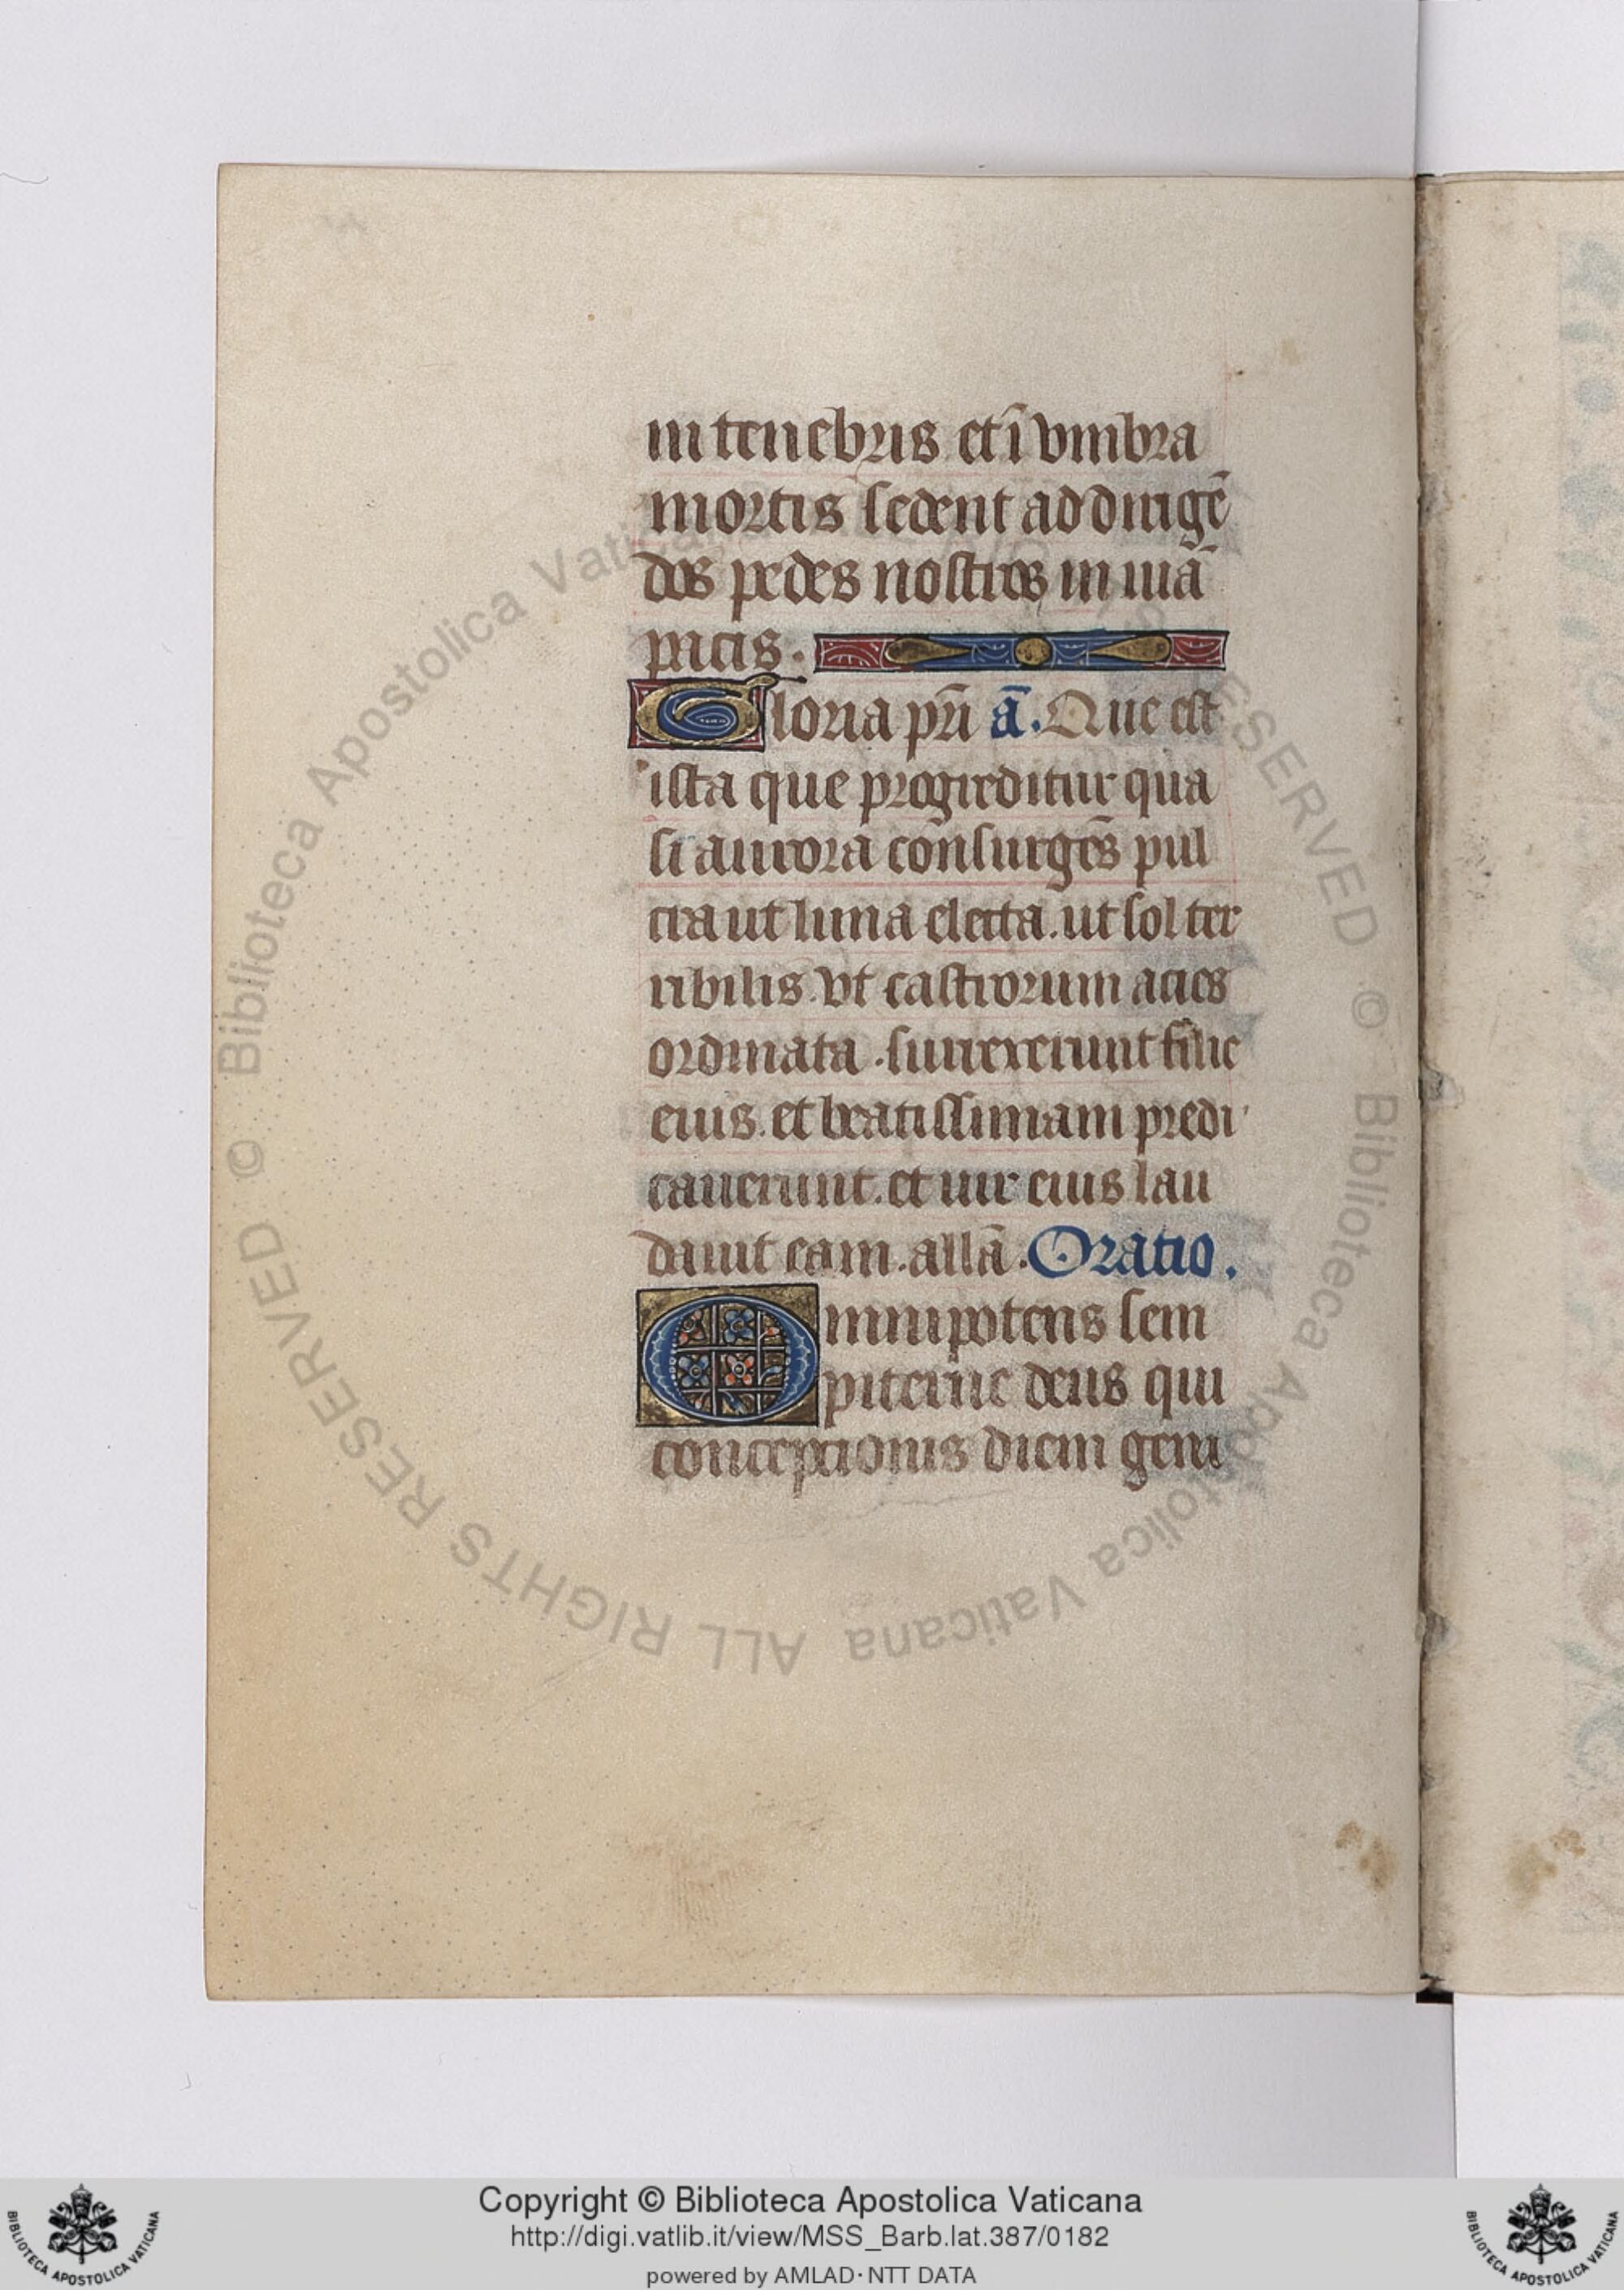 in tenebris et ī vmbra
mortis sedent ad dirigē
dos pedes nostros in uiā
pacis.
Gloria pr̄i ā. Que est
ista que progreditur qua
si aurora cōnsurgēs pul
cra ut luna electa. ut sol ter
ribilis. vt castrorum acies
ordinata. surrexerunt filie
eius. et beatissimam predi
cauerunt. et uir eius lau
dauit eam. allā. Oratio.
Omnipotens sem
piterne deus qui
conceptionis diem geni
Biblioteca Apostolica Vaticana ALL RIGHTS RESERVED © Biblioteca Apostolica Vaticana ALL RIGHTS RESERVED ©
Copyright © Biblioteca Apostolica Vaticana
http://digi.vatlib.it/view/MSS_Barb.lat.387/0182
powered by AMLAD·NTT DATA
BIBLIOTECA APOSTOLICA VATICANA
BIBLIOTECA APOSTOLICA VATICANA